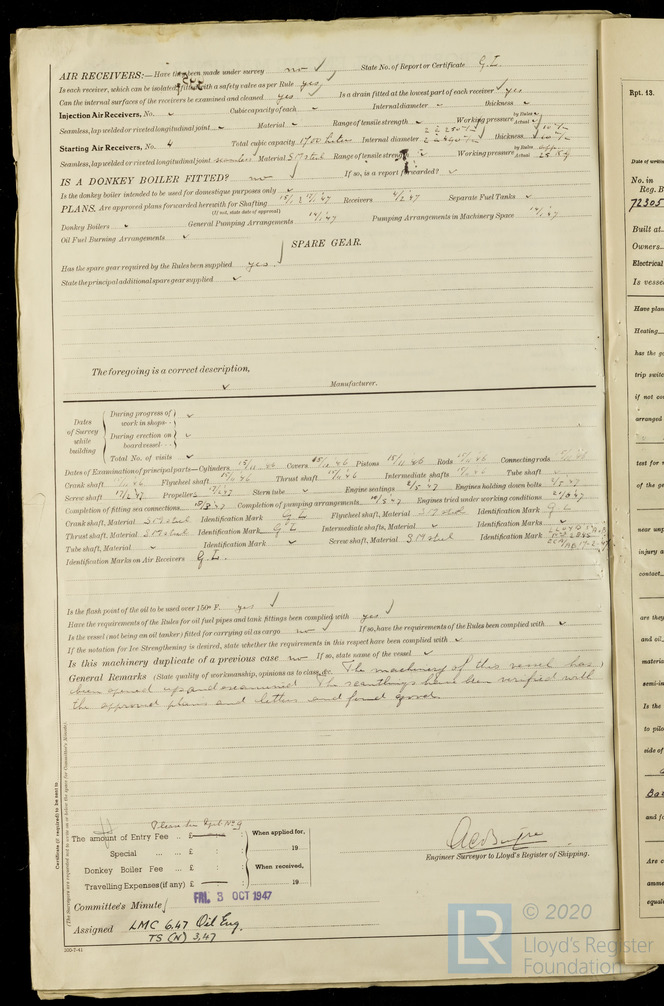 AIR RECEIVERS:—Have they been made under survey no ✓ State No. of Report or Certificate G.L.
Is each receiver, which can be isolated, fitted with a safety valve as per Rule yes
Can the internal surfaces of the receivers be examined and cleaned yes ✓ Is a drain fitted at the lowest part of each receiver yes
Injection Air Receivers, No. ✓ Cubic capacity of each ✓ Internal diameter ✓ thickness ✓
Seamless, lap welded or riveted longitudinal joint ✓ Material ✓ Range of tensile strength ✓ Working pressure by Rules ✓ Actual ✓
Starting Air Receivers, No. 4 Total cubic capacity Internal diameter thickness
Seamless, lap welded or riveted longitudinal joint seamless Material S M steel Range of tensile strength Working pressure by Rules Actual
IS A DONKEY BOILER FITTED? no ✓ If so, is a report forwarded? ✓
Is the donkey boiler intended to be used for domestic purposes only ✓
PLANS. Are approved plans forwarded herewith for Shafting Receivers Separate Fuel Tanks ✓
(If not, state date of approval)
Donkey Boilers ✓ General Pumping Arrangements Pumping Arrangements in Machinery Space
Oil Fuel Burning Arrangements ✓
SPARE GEAR.
Has the spare gear required by the Rules been supplied yes.
State the principal additional spare gear supplied ✓
The foregoing is a correct description,
✓ Manufacturer.
Dates of Survey while building
During progress of work in shops - - ✓
During erection on board vessel - - - ✓
Total No. of visits ✓
Dates of Examination of principal parts—Cylinders Covers Pistons Rods Connecting rods
Crank shaft Flywheel shaft Thrust shaft Intermediate shafts Tube shaft
Screw shaft Propeller Stern tube ✓ Engine seatings Engines holding down bolts
Completion of fitting sea connections Completion of pumping arrangements Engines tried under working conditions
Crank shaft, Material S M steel Identification Mark G L Flywheel shaft, Material S M steel Identification Mark G L
Thrust shaft, Material S M steel Identification Mark G L Intermediate shafts, Material ✓ Identification Marks ✓
Tube shaft, Material ✓ Identification Mark ✓ Screw shaft, Material S M steel Identification Mark
Identification Marks on Air Receivers G.L.
Is the flash point of the oil to be used over 150° F. yes ✓
Have the requirements of the Rules for oil fuel pipes and tank fittings been complied with yes ✓
Is the vessel (not being an oil tanker) fitted for carrying oil as cargo no ✓ If so, have the requirements of the Rules been complied with ✓
If the notation for Ice Strengthening is desired, state whether the requirements in this respect have been complied with ✓
Is this machinery duplicate of a previous case no If so, state name of the vessel ✓
General Remarks (State quality of workmanship, opinions as to class, &c. The machinery of this vessel has
been opened up and examined. The scantlings have been verified with
the approved plans and letters and found good.
The amount of Entry Fee .. £ : : When applied for,
Special ... ... £ : : 19
Donkey Boiler Fee ... £ : : When received,
Travelling Expenses (if any) £ : : 19
Engineer Surveyor to Lloyd's Register of Shipping.
Committee's Minute FRI. 3 OCT 1947
Assigned LMC 6.47 Oil Eng.
TS (N) 3.47
Certificate (if required) to be sent to
(The Surveyors are requested not to write on or below the space for Committee's Minute.)
Rpt. 13.
Date of writing
No. in
Reg. B
72305
Built at
Owners
Electrical
Is vesse
Have plan
Heating
has the go
trip switc
if not co
arranged
test for
of the ge
near unp
injury a
contact
are they
and oil,
materia
semi-in
Is the
to pilo
side of
and fo
Are c
amme
equali
LR
© 2020
Lloyd's Register
Foundation